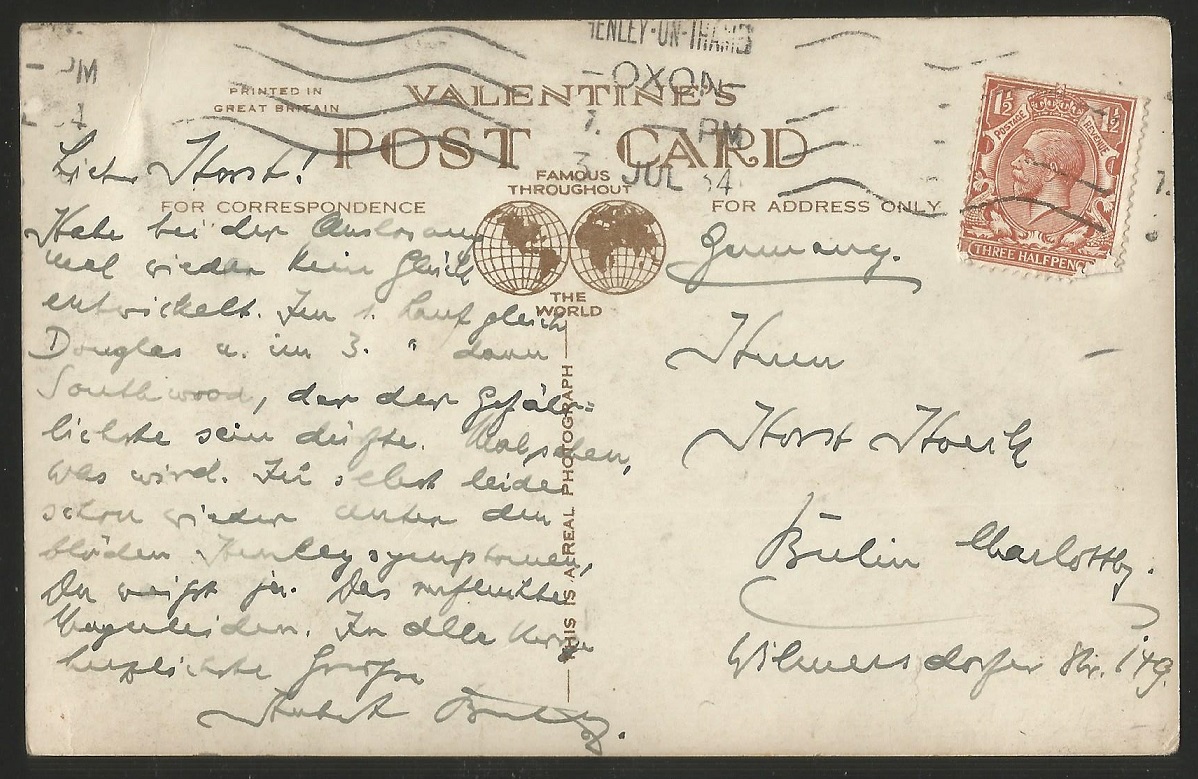 HENLEY-ON-THAMES
OXON
PM
7.
3
JUL 34
PM
PRINTED IN
GREAT BRITAIN
VALENTINE'S
POST CARD
FAMOUS
THROUGHOUT
THE
WORLD
FOR CORRESPONDENCE
FOR ADDRESS ONLY
THIS IS A REAL PHOTOGRAPH
1½ 1½
POSTAGE REVENUE
THREE HALFPENCE
Lieber Horst!
Habe bei der Auslosung
mal wieder kein Glück
entwickelt. Im 1. Lauf gleich
Douglas u. im 3. " dann
Southwood, der der Gefähr=
lichste sein dürfte. Mal sehen,
was wird. Im selbst leide
schon wieder unter den
blöden Henleysymptomen,
Du weißt ja. Das verfluchte
Magenleiden. An alle
herzlichste Grüße
Germany.
Herrn
Horst Hoeck
Berlin Charlottbg.
Wilmersdorfer Str. 149.